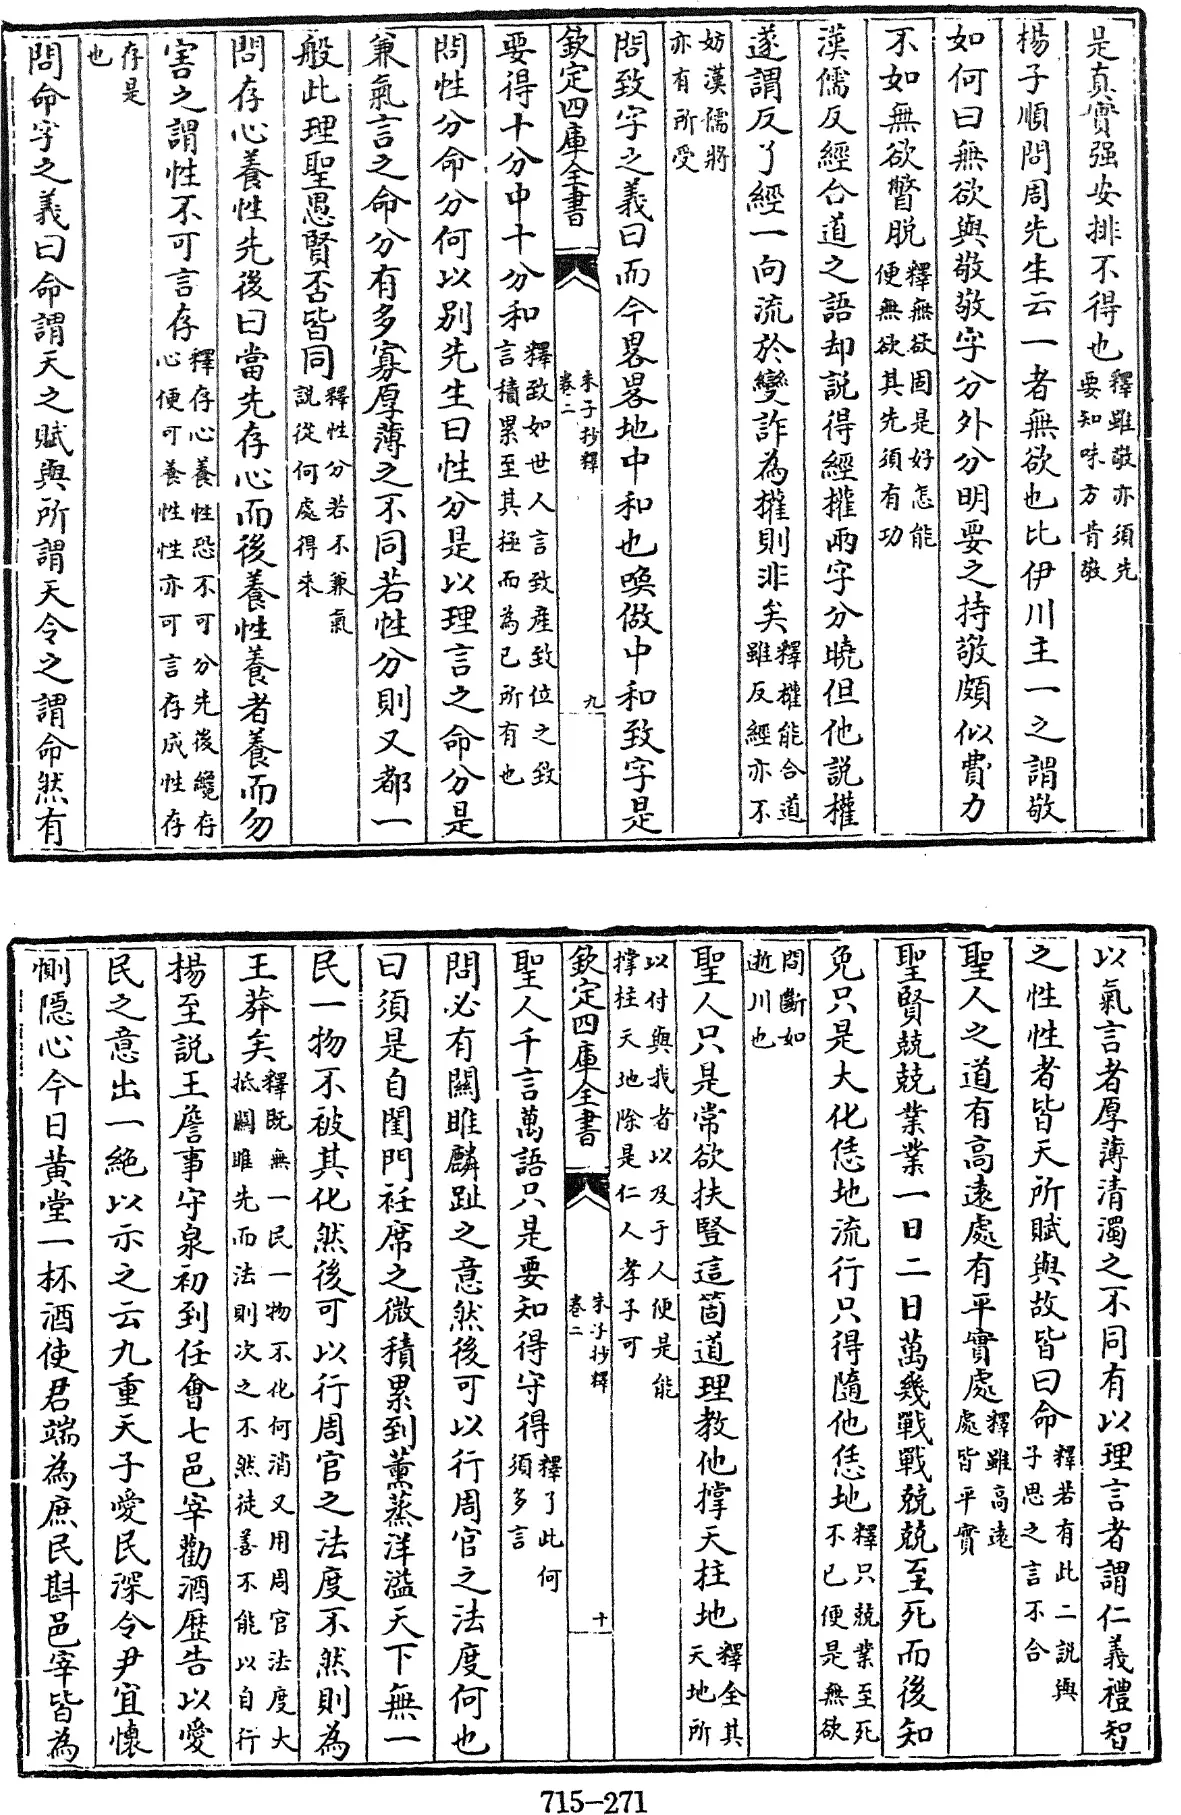 是真實强安排不得也釋雖敬亦須先要知味方肯敬
楊子順問周先生云一者無欲也比伊川主一之謂敬
如何曰無欲與敬敬字分外分明要之持敬頗似費力
不如無欲瞥脱釋無欲固是好怎能便無欲其先須有功
漢儒反經合道之語却説得經權兩字分曉但他説權
遂謂反了經一向流於變詐為權則非矣釋權能合道雖反經亦不
妨漢儒將亦有所受
問致字之義曰而今畧畧地中和也喚做中和致字是
欽定四庫全書 朱子抄釋 卷二 九
要得十分中十分和釋致如世人言致産致位之致言積累至其極而為已所有也
問性分命分何以别先生曰性分是以理言之命分是
兼氣言之命分有多寡厚薄之不同若性分則又都一
般此理聖愚賢否皆同釋性分若不兼氣説從何處得來
問存心養性先後曰當先存心而後養性養者養而勿
害之謂性不可言存釋存心養性恐不可分先後纔存心便可養性性亦可言存成性存
存是也
問命字之義曰命謂天之賦與所謂天令之謂命然有
以氣言者厚薄清濁之不同有以理言者謂仁義禮智
之性性者皆天所賦與故皆曰命釋若有此二説與子思之言不合
聖人之道有高遠處有平實處釋雖高遠處皆平實
聖賢兢兢業業一日二日萬幾戰戰兢兢至死而後知
免只是大化恁地流行只得隨他恁地釋只兢業至死不已便是無欲
間斷如逝川也
聖人只是常欲扶豎這箇道理教他撑天柱地釋全其天地所
以付與我者以及于人便是能撑柱天地除是仁人孝子可
欽定四庫全書 朱子抄釋 卷二 十
聖人千言萬語只是要知得守得釋了此何須多言
問必有關雎麟趾之意然後可以行周官之法度何也
曰須是自閨門袵席之微積累到薰蒸洋溢天下無一
民一物不被其化然後可以行周官之法度不然則為
王莽矣釋既無一民一物不化何消又用周官法度大抵關雎先而法則次之不然徒善不能以自行
揚至説王詹事守泉初到任會七邑宰勸酒歴告以愛
民之意出一絶以示之云九重天子愛民深令尹宜懷
惻隱心今日黄堂一杯酒使君端為庶民斟邑宰皆為
715-271